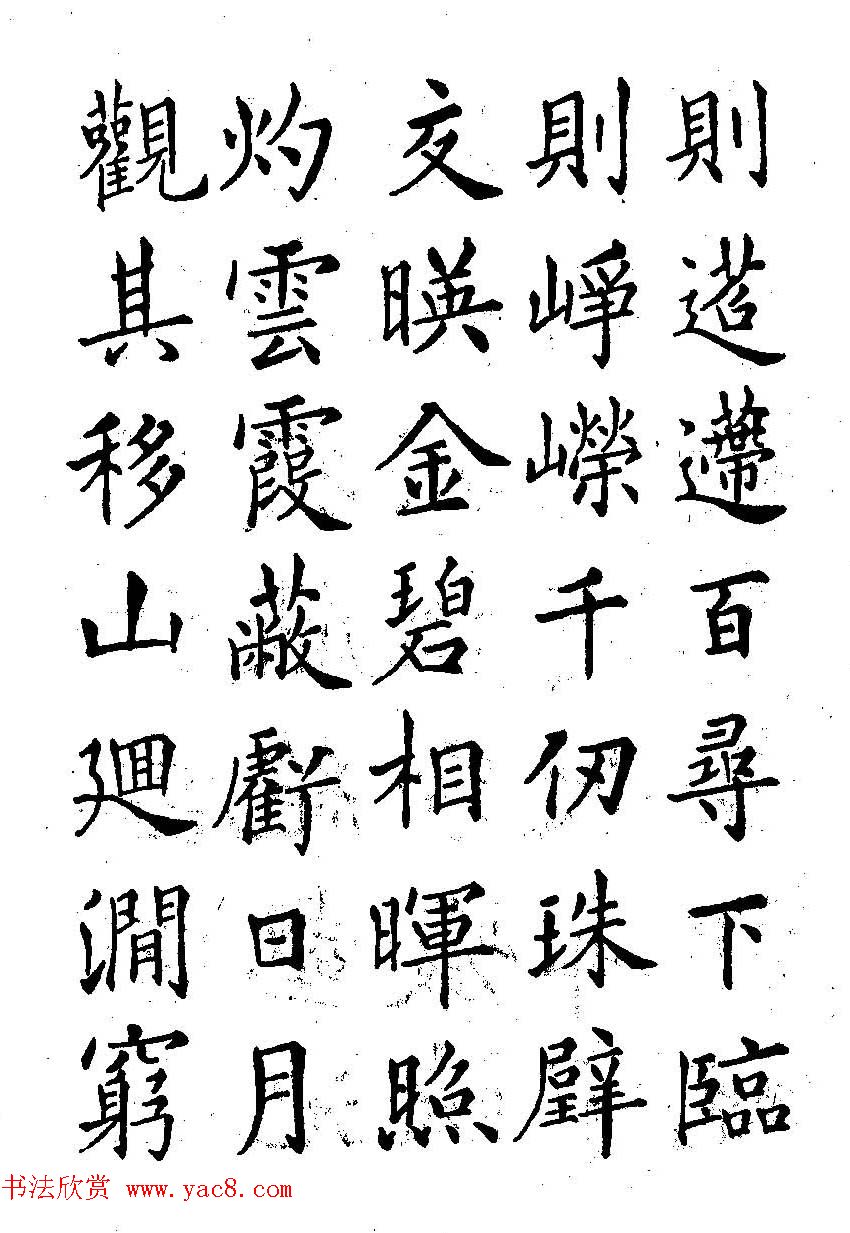 則迢遰百尋下臨
則崢嶸千仞珠璧
交暎金碧相暉照
灼雲霞蔽虧日月
觀其移山廻澗窮
书法欣赏 www.yac8.com